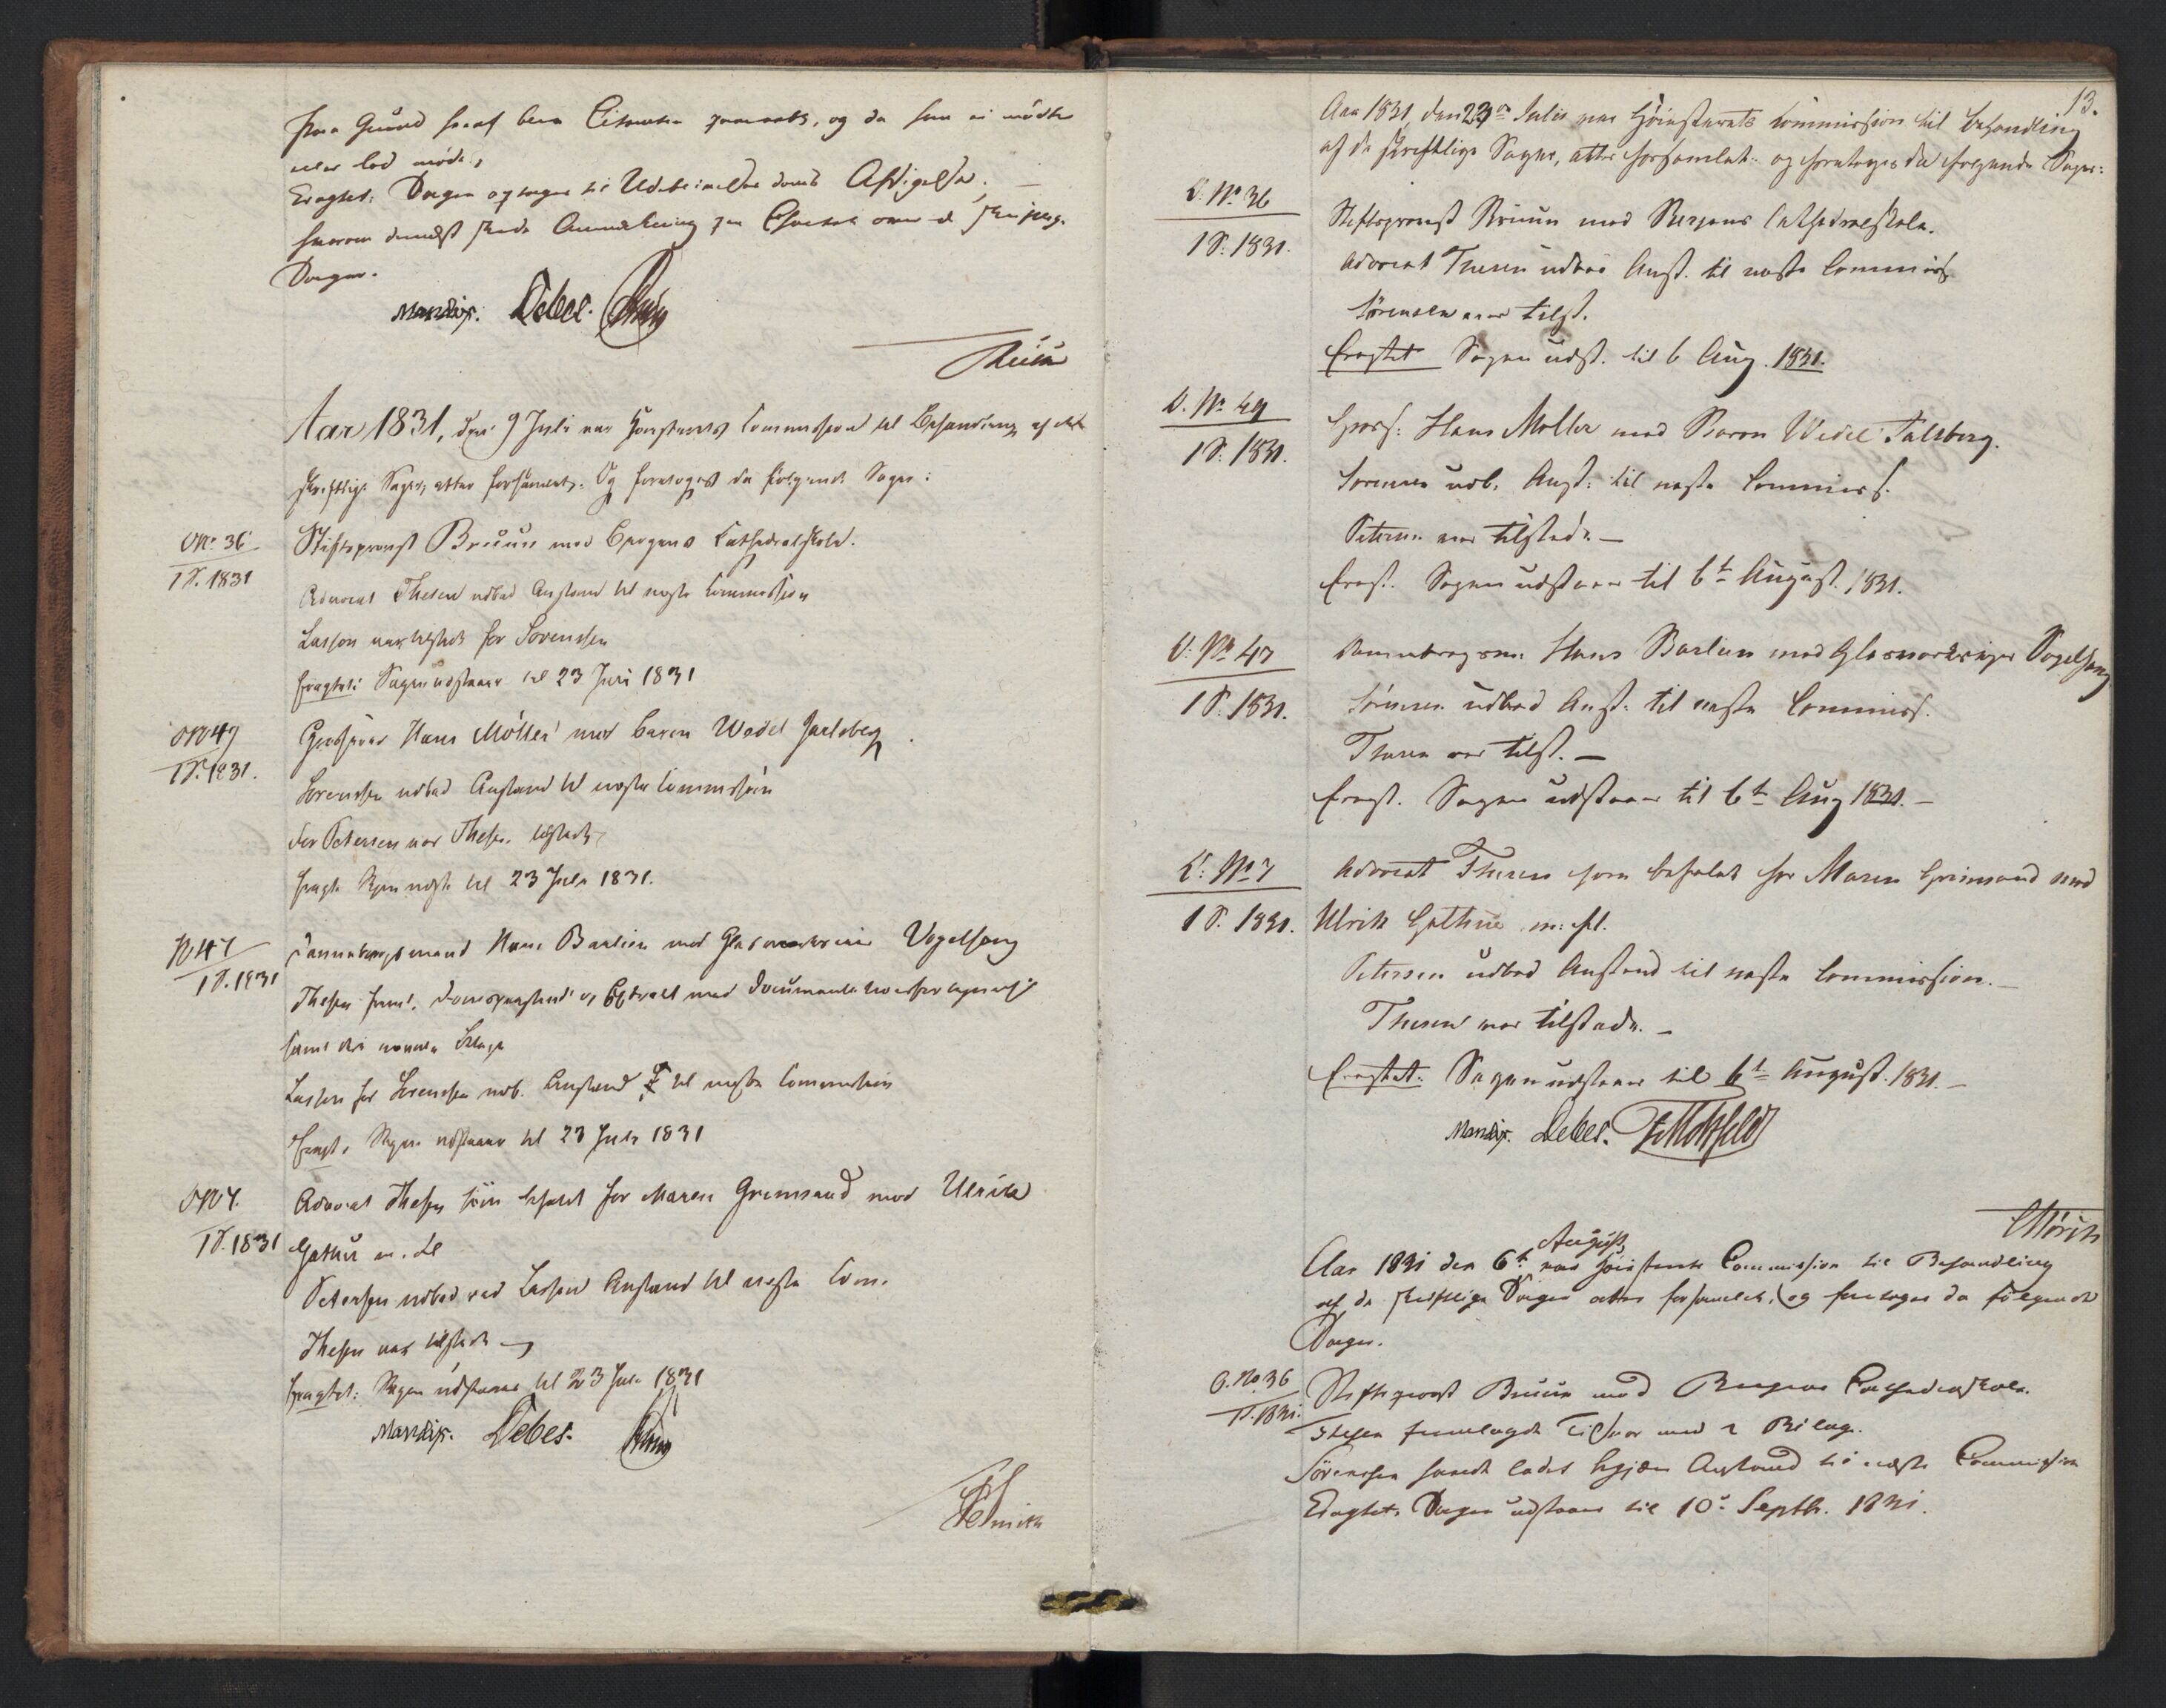 paa Grund heraf bem Citanten paaraabt, og da han ei mödte
eller lod möde,
Eragtet: Sagen optages til Udeblivelses doms Afsigelse. —
hvorom dernæst skede Anmærkning paa Chartet over de skriftlige
Sager.
Mandix. Debes.
Aar 1831, den 9 Juli var Høiesterets Commission til Behandling af de
skriftlige Sager, atter forsamlet. Og foretoges da følgende Sager:
O No 36
1 S. 1831
Stiftsprovst Bruun mod Bergens Cathedralskole.
Advocat Thesen udbad Anstand til næste Commission
Lasson var tilstede for Sørenssen
Eragtet: Sagen udstaaer til 23 Juli 1831
O No 49
1 S. 1831.
Grosserer Hans Møller mod Baron Wedel Jarlsberg.
Sørenssen udbad Anstand til næste Commission
For Petersen var Thesen tilstede
Eragt. Sagen udst. til 23 Juli 1831.
No 47
1 S. 1831
Dannebrogsmand Hans Barlien mod Glasmærker Vogelsang
Thesen freml. og Extract med Documenter
samt
Lasson for Sørenssen udb. Anstand til næste Commission
Eragt. Sagen udstaaer til 23 Juli 1831
O No 7.
1 S. 1831
Advocat Thesen som befalet for Maren Grimsrud mod Ulrikke
Gathus m. fl
Petersen udbad ved Lasson Anstand til næste Com.
Thesen var tilstede —
Eragtet: Sagen udstaaer til 23 Juli 1831
Mandix. Debes.
13.
Aar 1831, den 23de Julii var Høiesterets Commission til Behandling
af de skriftlige Sager, atter forsamlet. og foretoges da følgende Sager:
O. No 36
1 S. 1831.
Stiftsprovst Bruun mod Bergens Cathedralskole.
Advocat Thesen udbad Anst. til næste Commiss.
Sørensen var tilst.
Eragtet Sagen udst. til 6 Aug. 1831.
O. No 49
1 S. 1831.
Gross: Hans Møller mod Baron Wedel Jalsberg.
Sørensen udb. Anst. til næste Commiss.
Petersen var tilstede. —
Eragt. Sagen udstaaer til 6te August. 1831.
O: No 47
1 S. 1831.
Dannebrogsm. Hans Barlien mod Glasmærker Vogelsang
Sørensen udbad Anst. til næste Commiss.
Thesen var tilst. —
Eragt. Sagen udstaaer til 6te Aug 1831. —
O: No 7
1 S. 1831.
Advocat Thesen som befalet for Maren Grimsrud mod
Ulrikke Gathus m: fl.
Petersen udbad Anstand til næste Commission. —
Thesen var tilstede. —
Eragtet. Sagen udstaaer til 6te August. 1831. —
Mandix. Debes. Motzfeldt
August
Aar 1831 den 6te var Høiesterets Commission til Behandling
af de skriftlige Sager atter forsamlet, og foretoges da følgende
Sager.
O. No. 36
1 S. 1831.
Stiftsprovst Bruun mod Bergens Cathedralskole.
Thesen fremlagde Tilsvar med 2 Bilage.
Sørenssen havde ladet begjære Anstand til næste Commission
Eragtet: Sagen udstaaer til 10de Septbr. 1831.